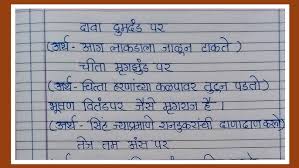 दावा द्रुमदंड पर
(अर्थ - आग लाकडाला जाळून टाकते )
चीता मृगझुंड पर
(अर्थ - चित्ता हरणाच्या कळपावर तुटून पडतो)
भूषण वितंडपर जैसे मृगराज है ।
(अर्थ - सिंह ज्याप्रमाणे रानडुकरांची दाणादाण करतो)
तेज तम अंस पर